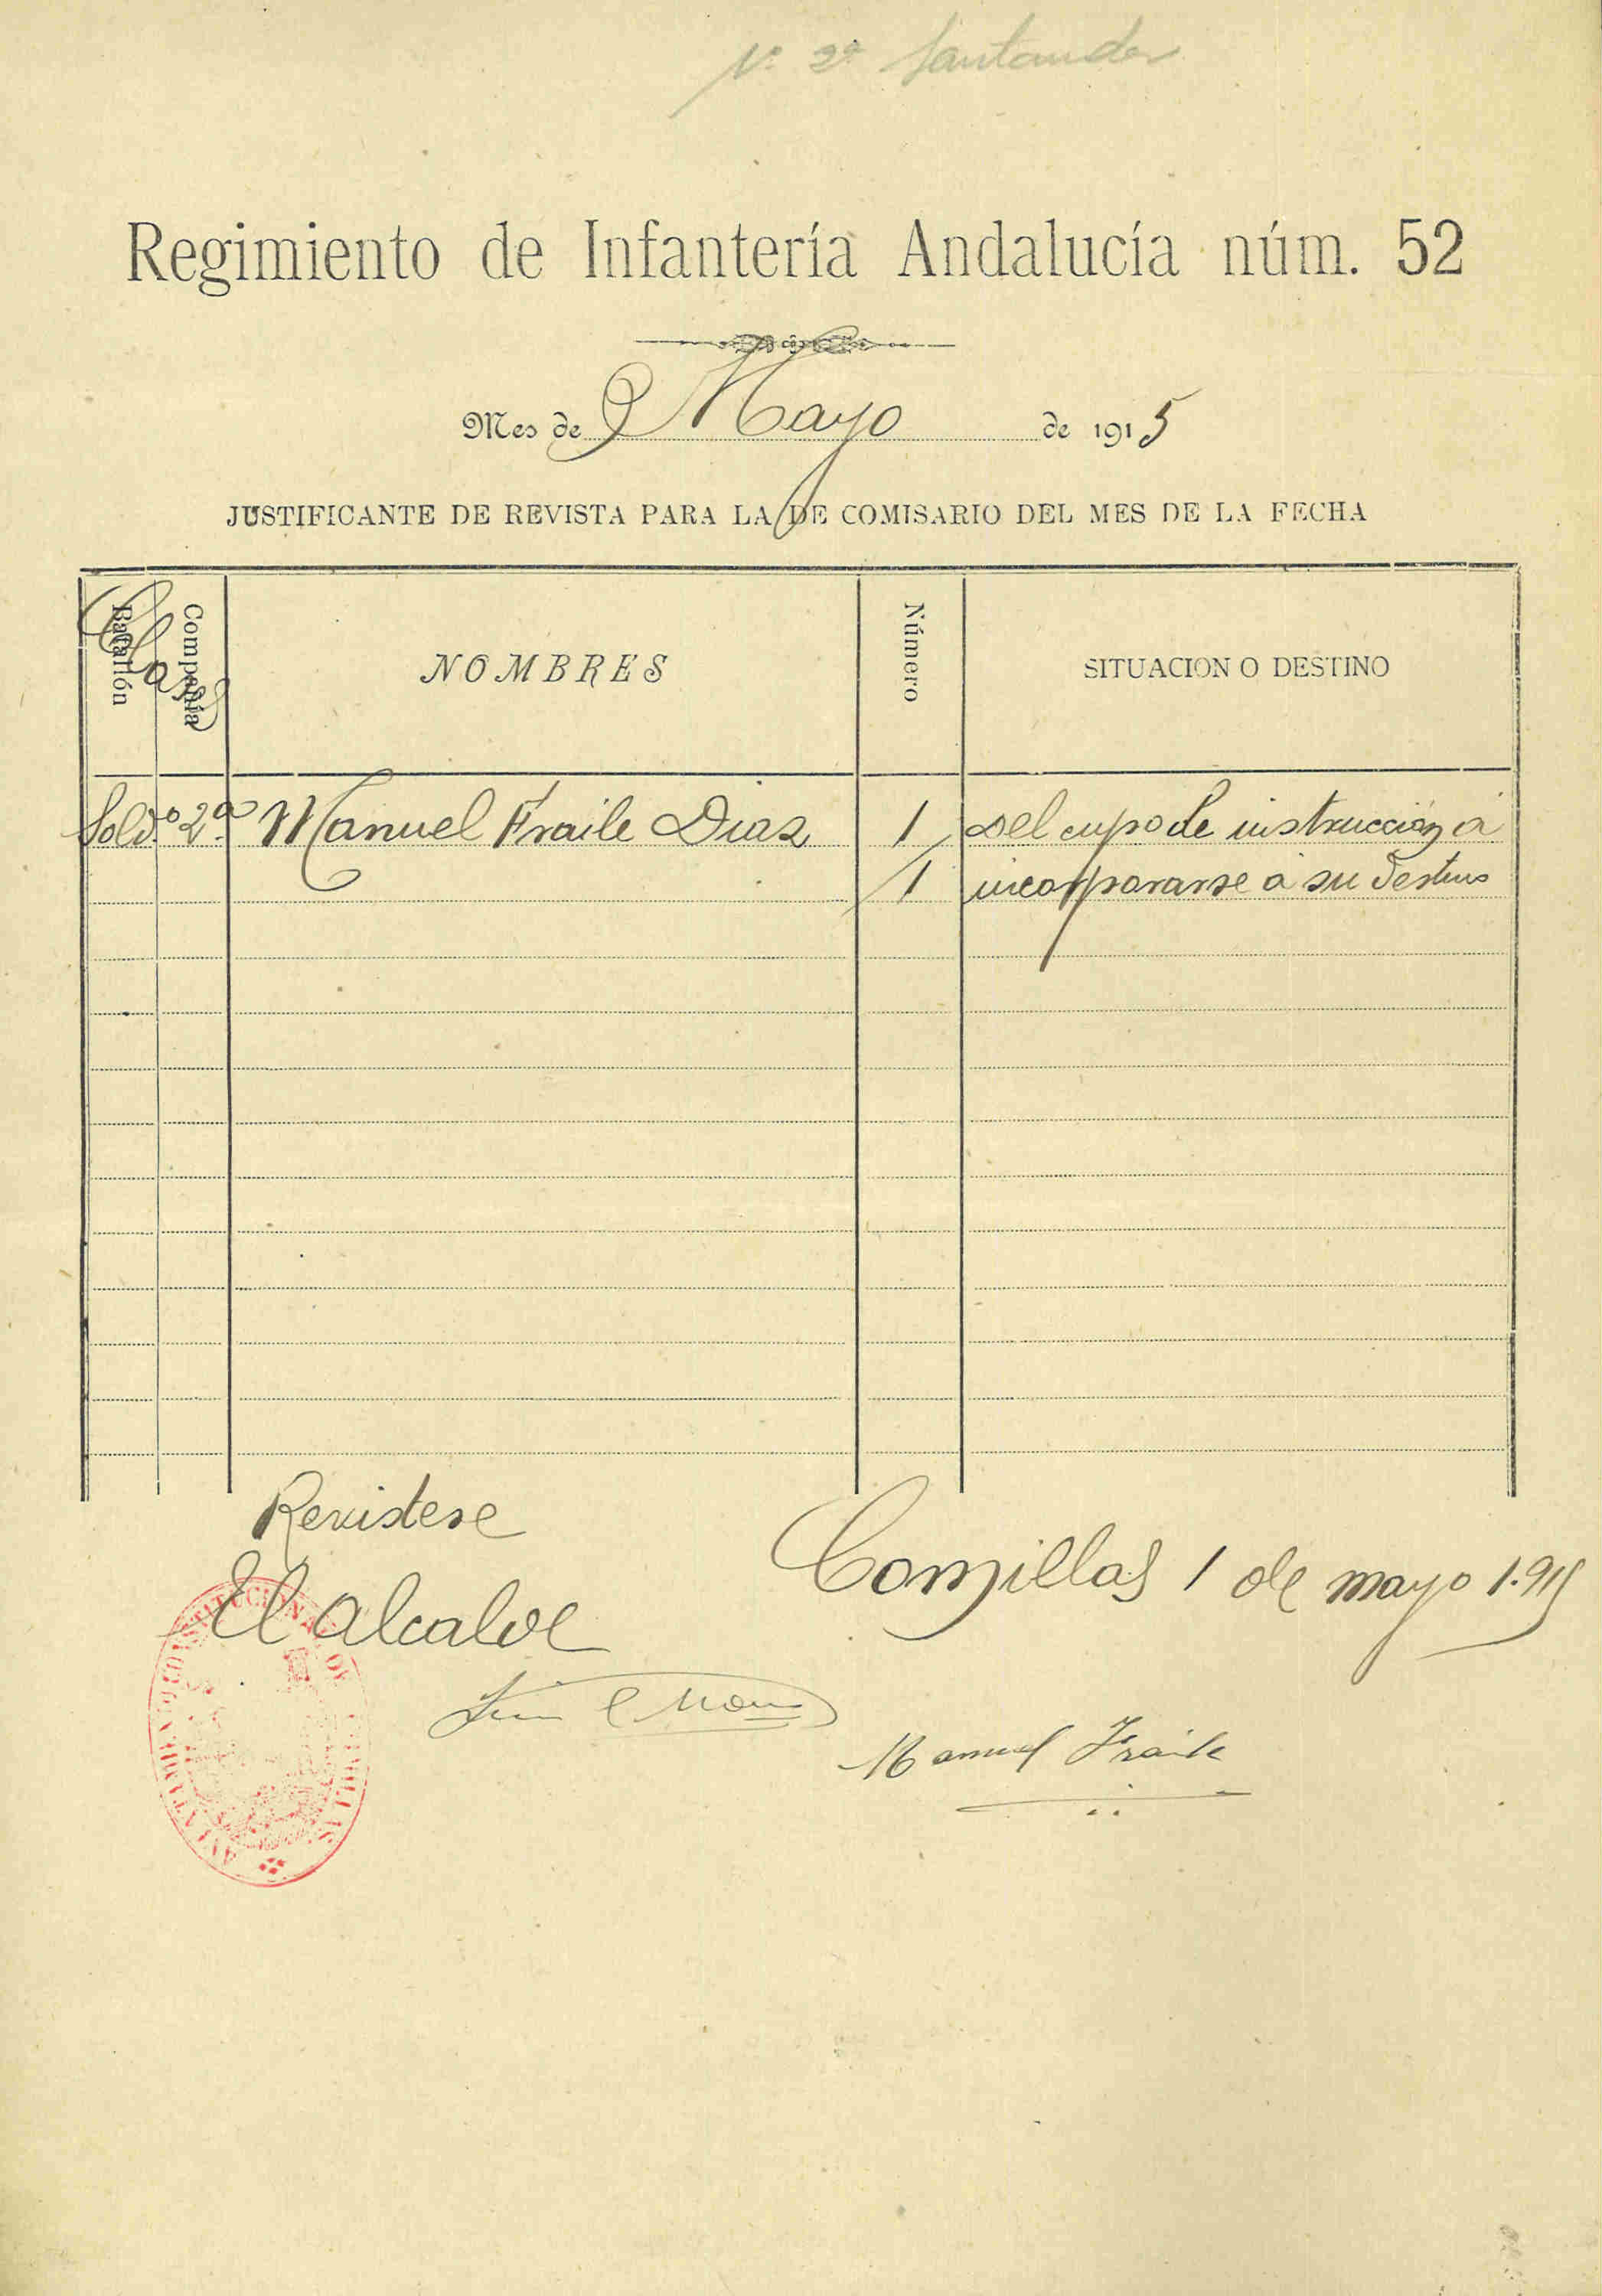 Nº 2º Santander
Regimiento de Infantería Andalucía núm. 52
Mes de Mayo de 1915
JUSTIFICANTE DE REVISTA PARA LA DE COMISARIO DEL MES DE LA FECHA
Batallón Compañía Clases NOMBRES Número SITUACION O DESTINO
Sold.º 2.ª Manuel Fraile Diaz 1 Del cupo de instrucción á
1 incorporarse á su destino
Revistese
El Alcalde
Comillas 1 de mayo 1.915
Manuel Fraile
AYUNTAMIENTO CONSTITUCIONAL DE COMILLAS